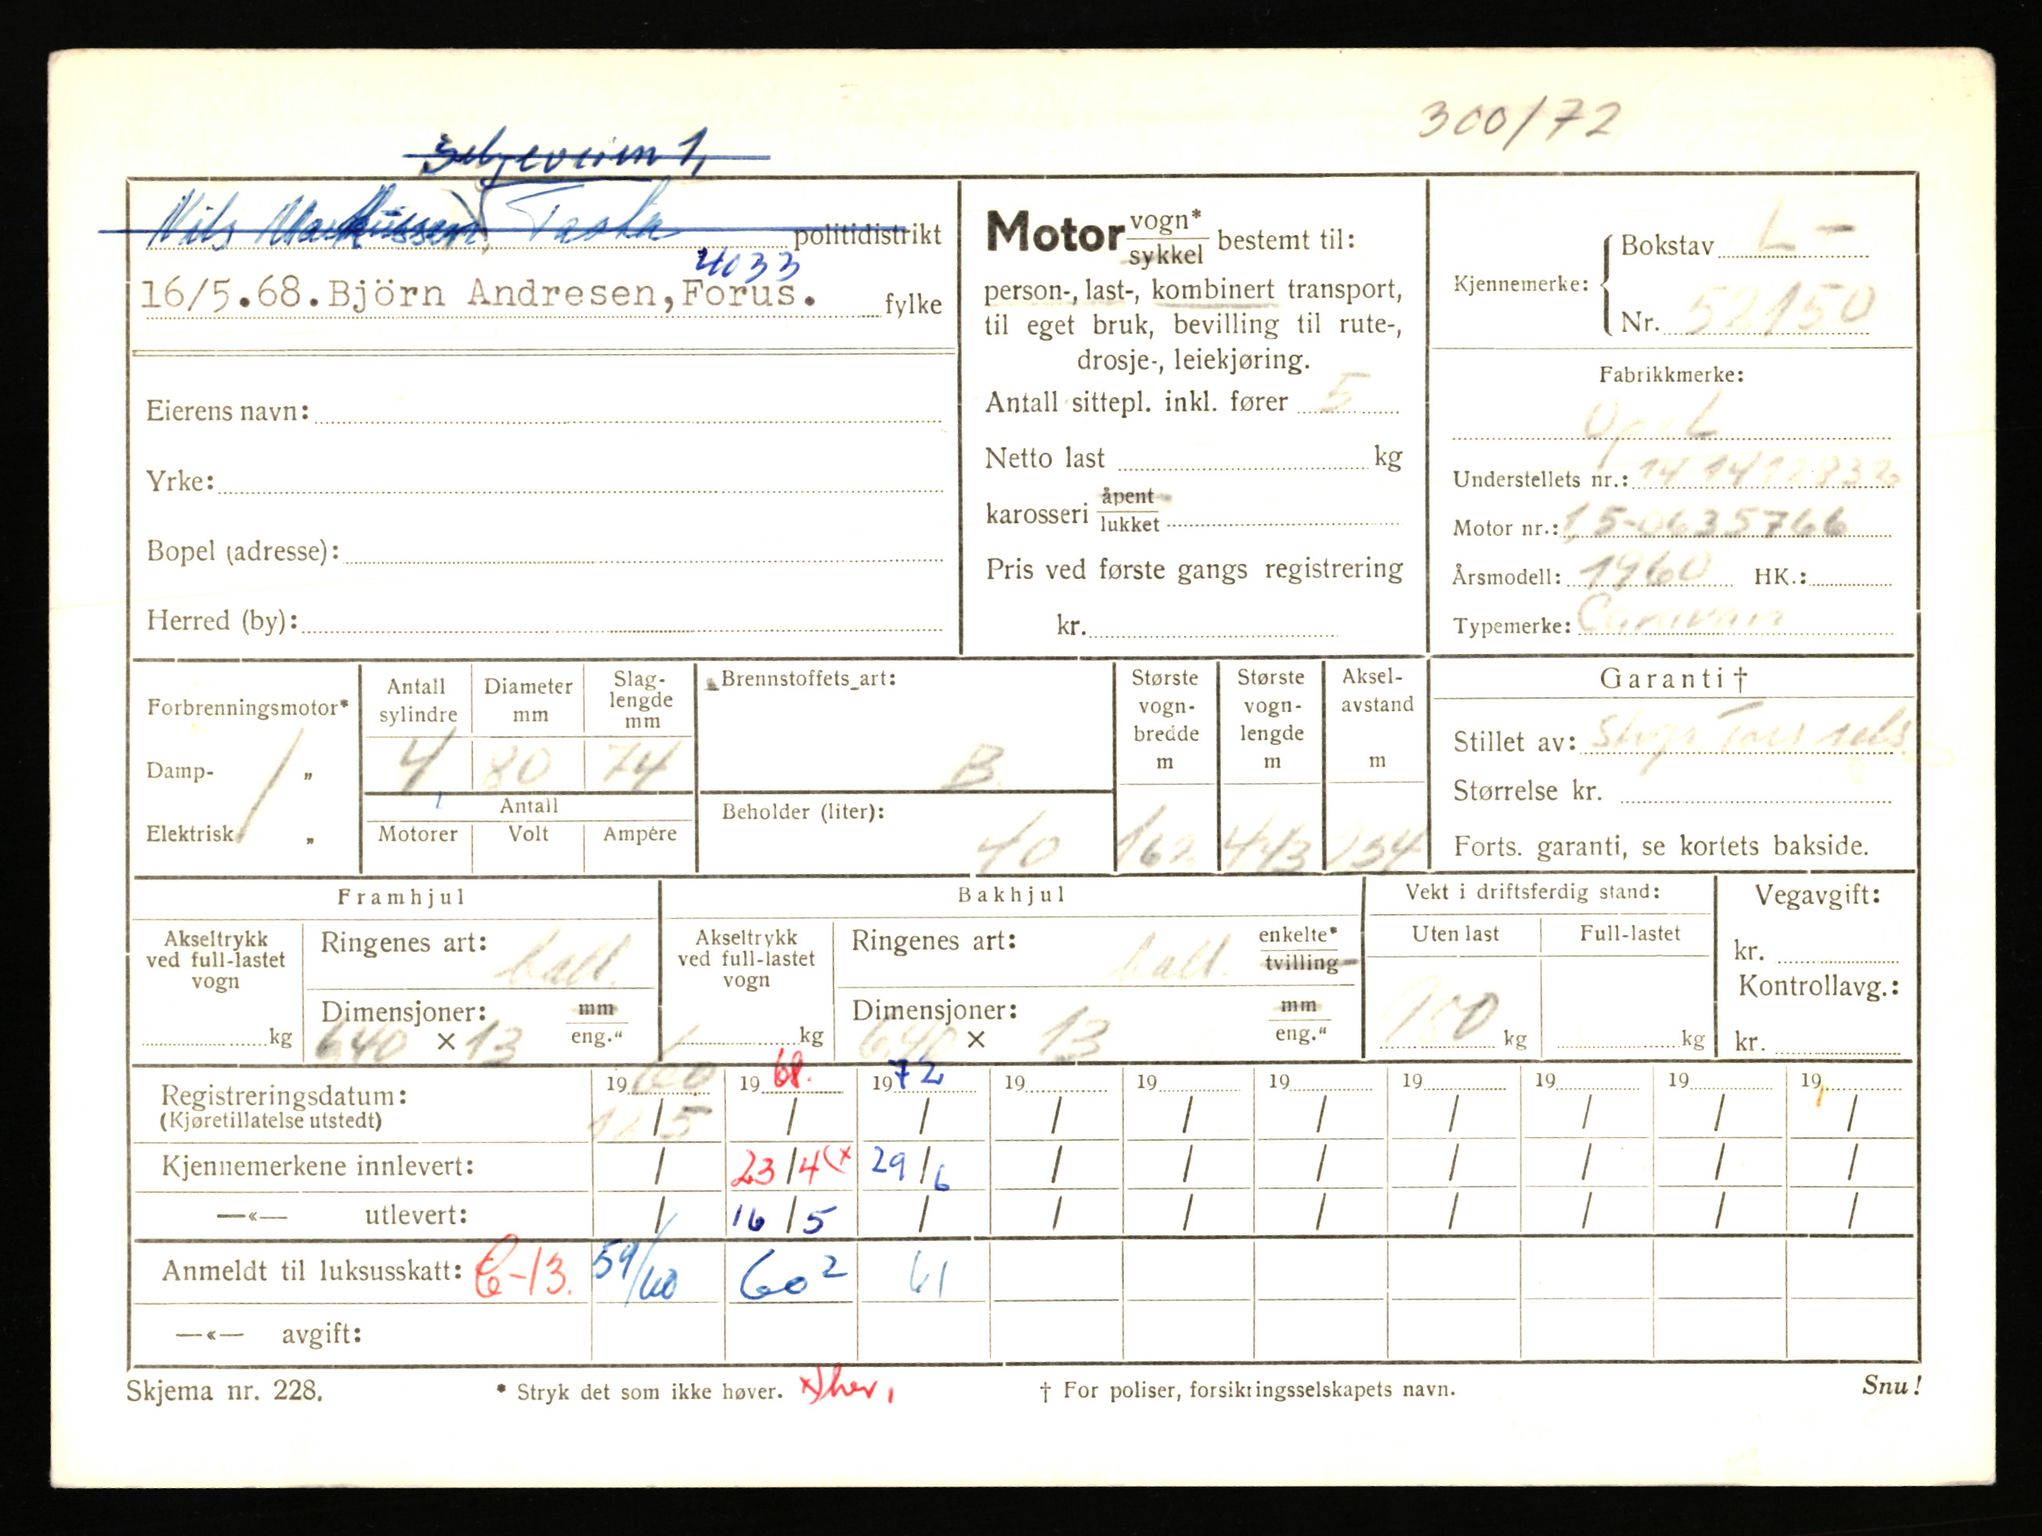 300/72
Seljeveien 1,
Nils Markussen, Tasta politidistrikt
4033
16/5.68. Björn Andresen, Forus. fylke
Eierens navn:
Yrke:
Bopel (adresse):
Herred (by):
Motor vogn* sykkel bestemt til:
person-, last-, kombinert transport,
til eget bruk, bevilling til rute-,
drosje-, leiekjøring.
Antall sittepl. inkl. fører 5
Netto last kg
karosseri åpent lukket
Pris ved første gangs registrering
kr.
Kjennemerke: Bokstav L-
Nr. 52150
Fabrikkmerke:
Opel
Understellets nr.: 14 1412832
Motor nr.: 15-0635766
Årsmodell: 1960 HK.:
Typemerke: Caravan
Forbrenningsmotor*
Damp- „
Elektrisk „
Antall sylindre 4
Diameter mm 80
Slag-lengde mm 74
Antall
Motorer Volt Ampére
Brennstoffets art: B
Beholder (liter): 40
Største vogn-bredde m 162
Største vogn-lengde m 443
Aksel-avstand m 254
Garanti †
Stillet av:
Størrelse kr.
Forts. garanti, se kortets bakside.
Framhjul
Akseltrykk ved full-lastet vogn kg
Ringenes art: ball.
Dimensjoner: mm eng."
640 × 13
Bakhjul
Akseltrykk ved full-lastet vogn kg
Ringenes art: ball. enkelte* tvilling
Dimensjoner: mm eng."
640 × 13
Vekt i driftsferdig stand:
Uten last Full-lastet
900 kg kg
Vegavgift:
kr.
Kontrollavg.:
kr.
Registreringsdatum: 1960 1968. 1972 19 19 19 19 19 19 19
(Kjøretillatelse utstedt) 12/5 / / / / / / / / /
Kjennemerkene innlevert: / 23/4 (x 29/6 / / / / / / /
—«— utlevert: / 16/5 / / / / / / / /
Anmeldt til luksusskatt: C-13. 59/60 60² 61
—«— avgift:
Skjema nr. 228. * Stryk det som ikke høver. x) her, † For poliser, forsikringsselskapets navn. Snu!